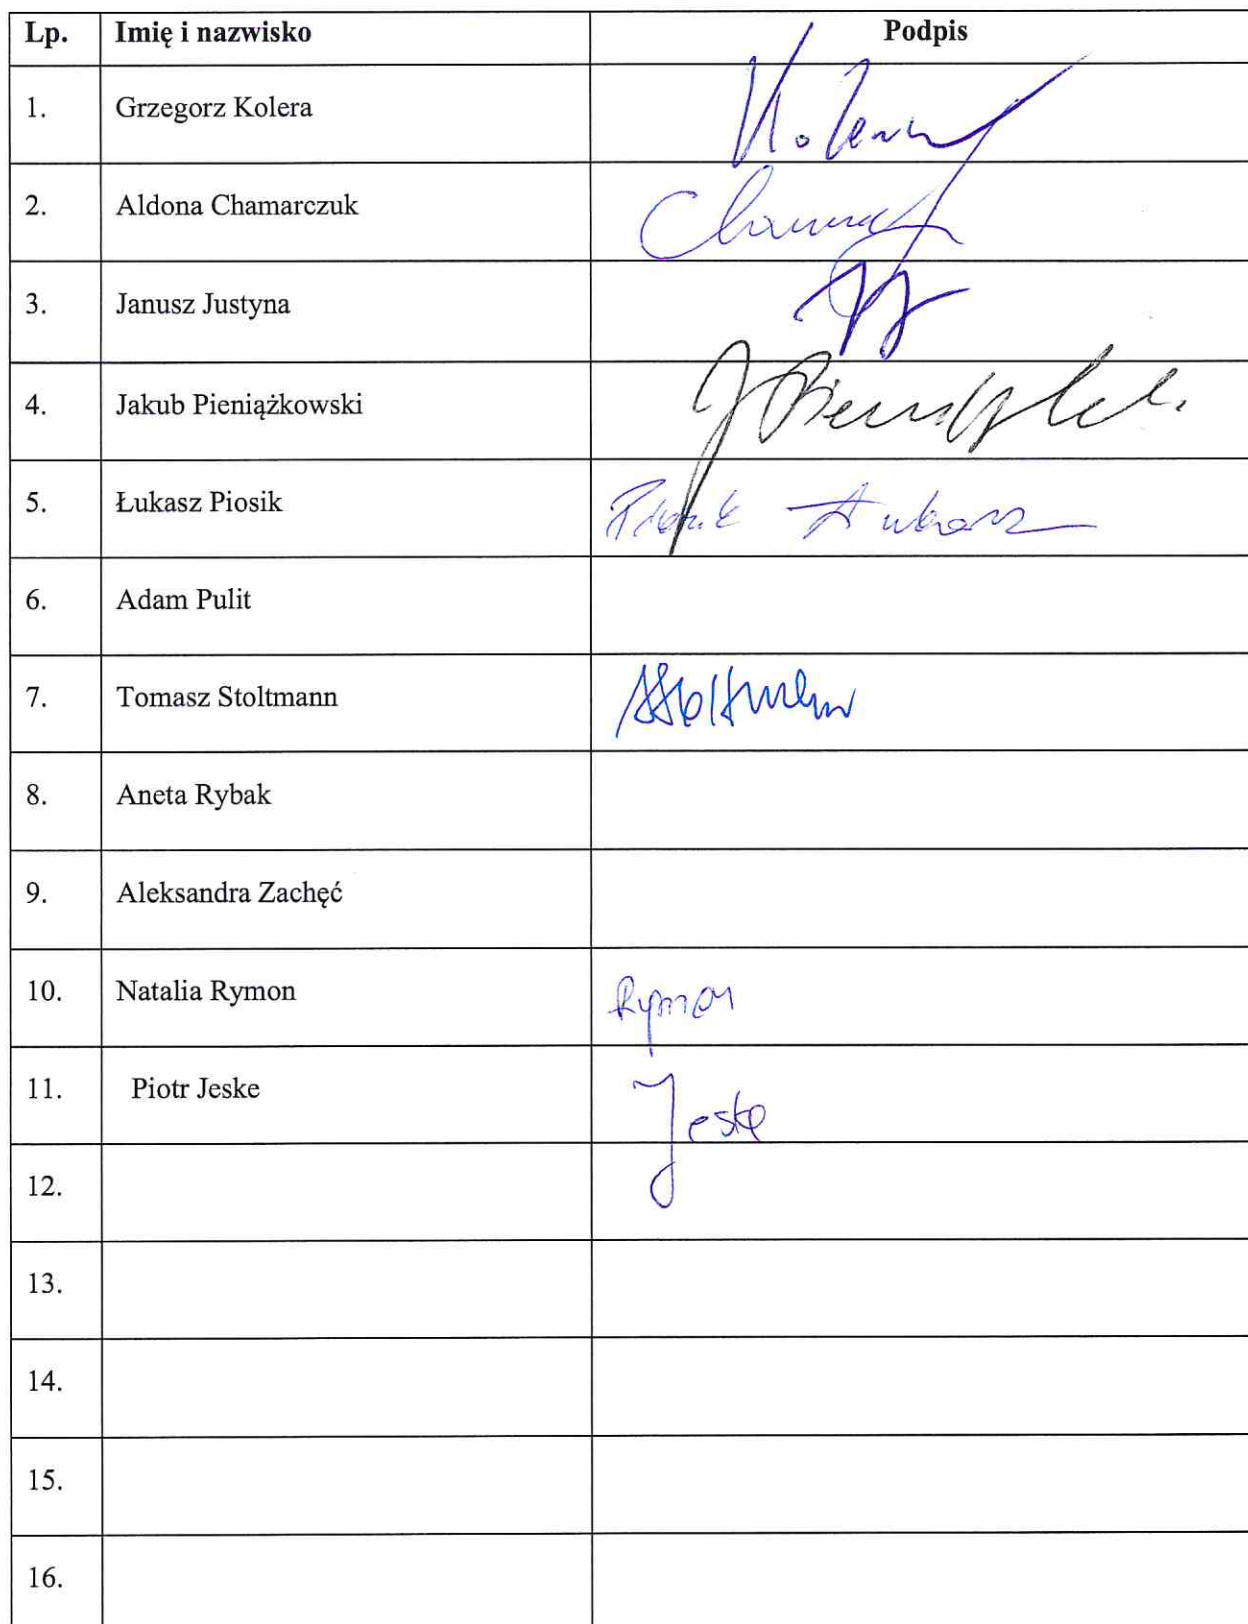 Lp. Imię i nazwisko Podpis
1. Grzegorz Kolera
2. Aldona Chamarczuk
3. Janusz Justyna
4. Jakub Pieniążkowski
5. Łukasz Piosik Piosik Łukasz
6. Adam Pulit
7. Tomasz Stoltmann
8. Aneta Rybak
9. Aleksandra Zachęć
10. Natalia Rymon Rymon
11. Piotr Jeske Jeske
12.
13.
14.
15.
16.